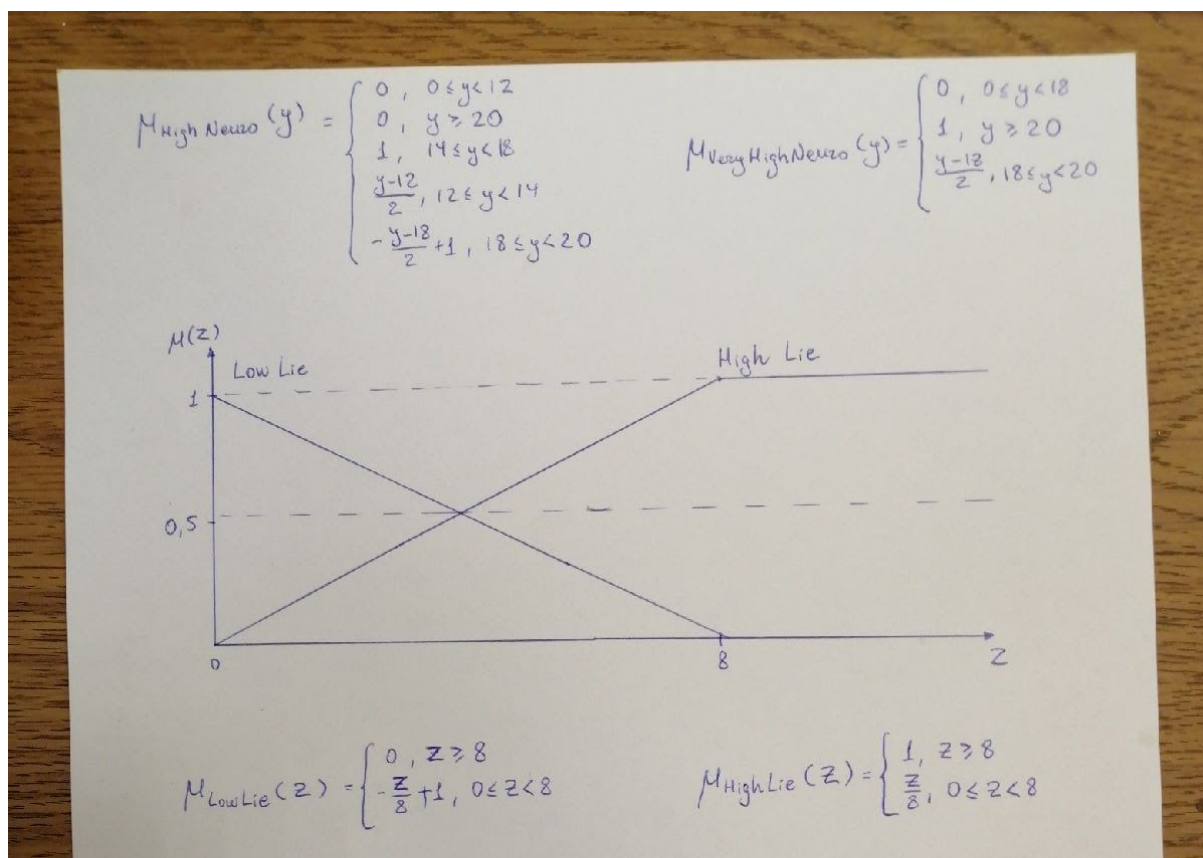 μHigh Neuro (y) = { 0, 0≤y<12
0, y≥20
1, 14≤y<18
y-12/2, 12≤y<14
-y-18/2+1, 18≤y<20
μVeryHighNeuro (y) = { 0, 0≤y<18
1, y≥20
y-18/2, 18≤y<20
μ(z)
Low Lie
High Lie
1
0,5
0
8
Z
μLowLie (z) = { 0, z≥8
-z/8+1, 0≤z<8
μHighLie (z) = { 1, z≥8
z/8, 0≤z<8